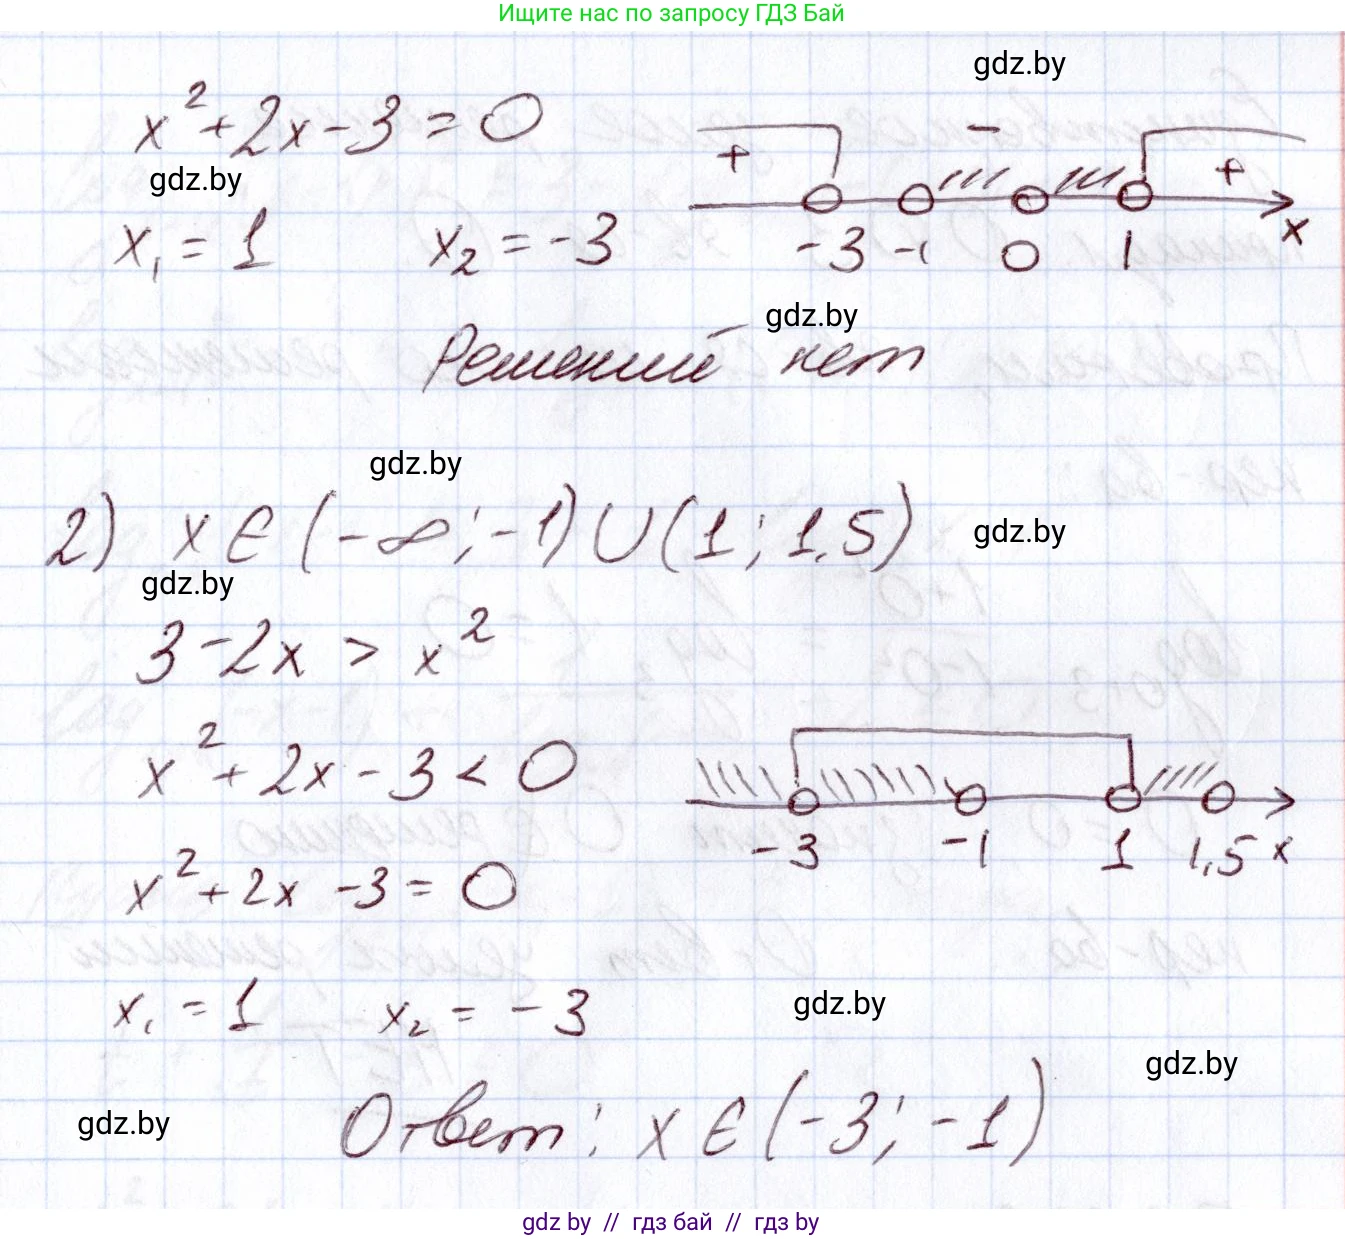 Ищите нас по запросу ГДЗ Бай
gdz.by
x² + 2x - 3 = 0
+ - +
gdz.by
-3 -1 0 1 x
x₁ = 1 x₂ = -3
gdz.by
Решений нет
gdz.by
2) x ∈ (-∞; -1) ∪ (1; 1,5)
gdz.by
gdz.by
3 - 2x > x²
x² + 2x - 3 < 0
-3 -1 1 1,5 x
x² + 2x - 3 = 0
x₁ = 1 x₂ = -3
gdz.by
gdz.by
gdz.by
Ответ: x ∈ (-3; -1)
gdz by // гдз бай // гдз by